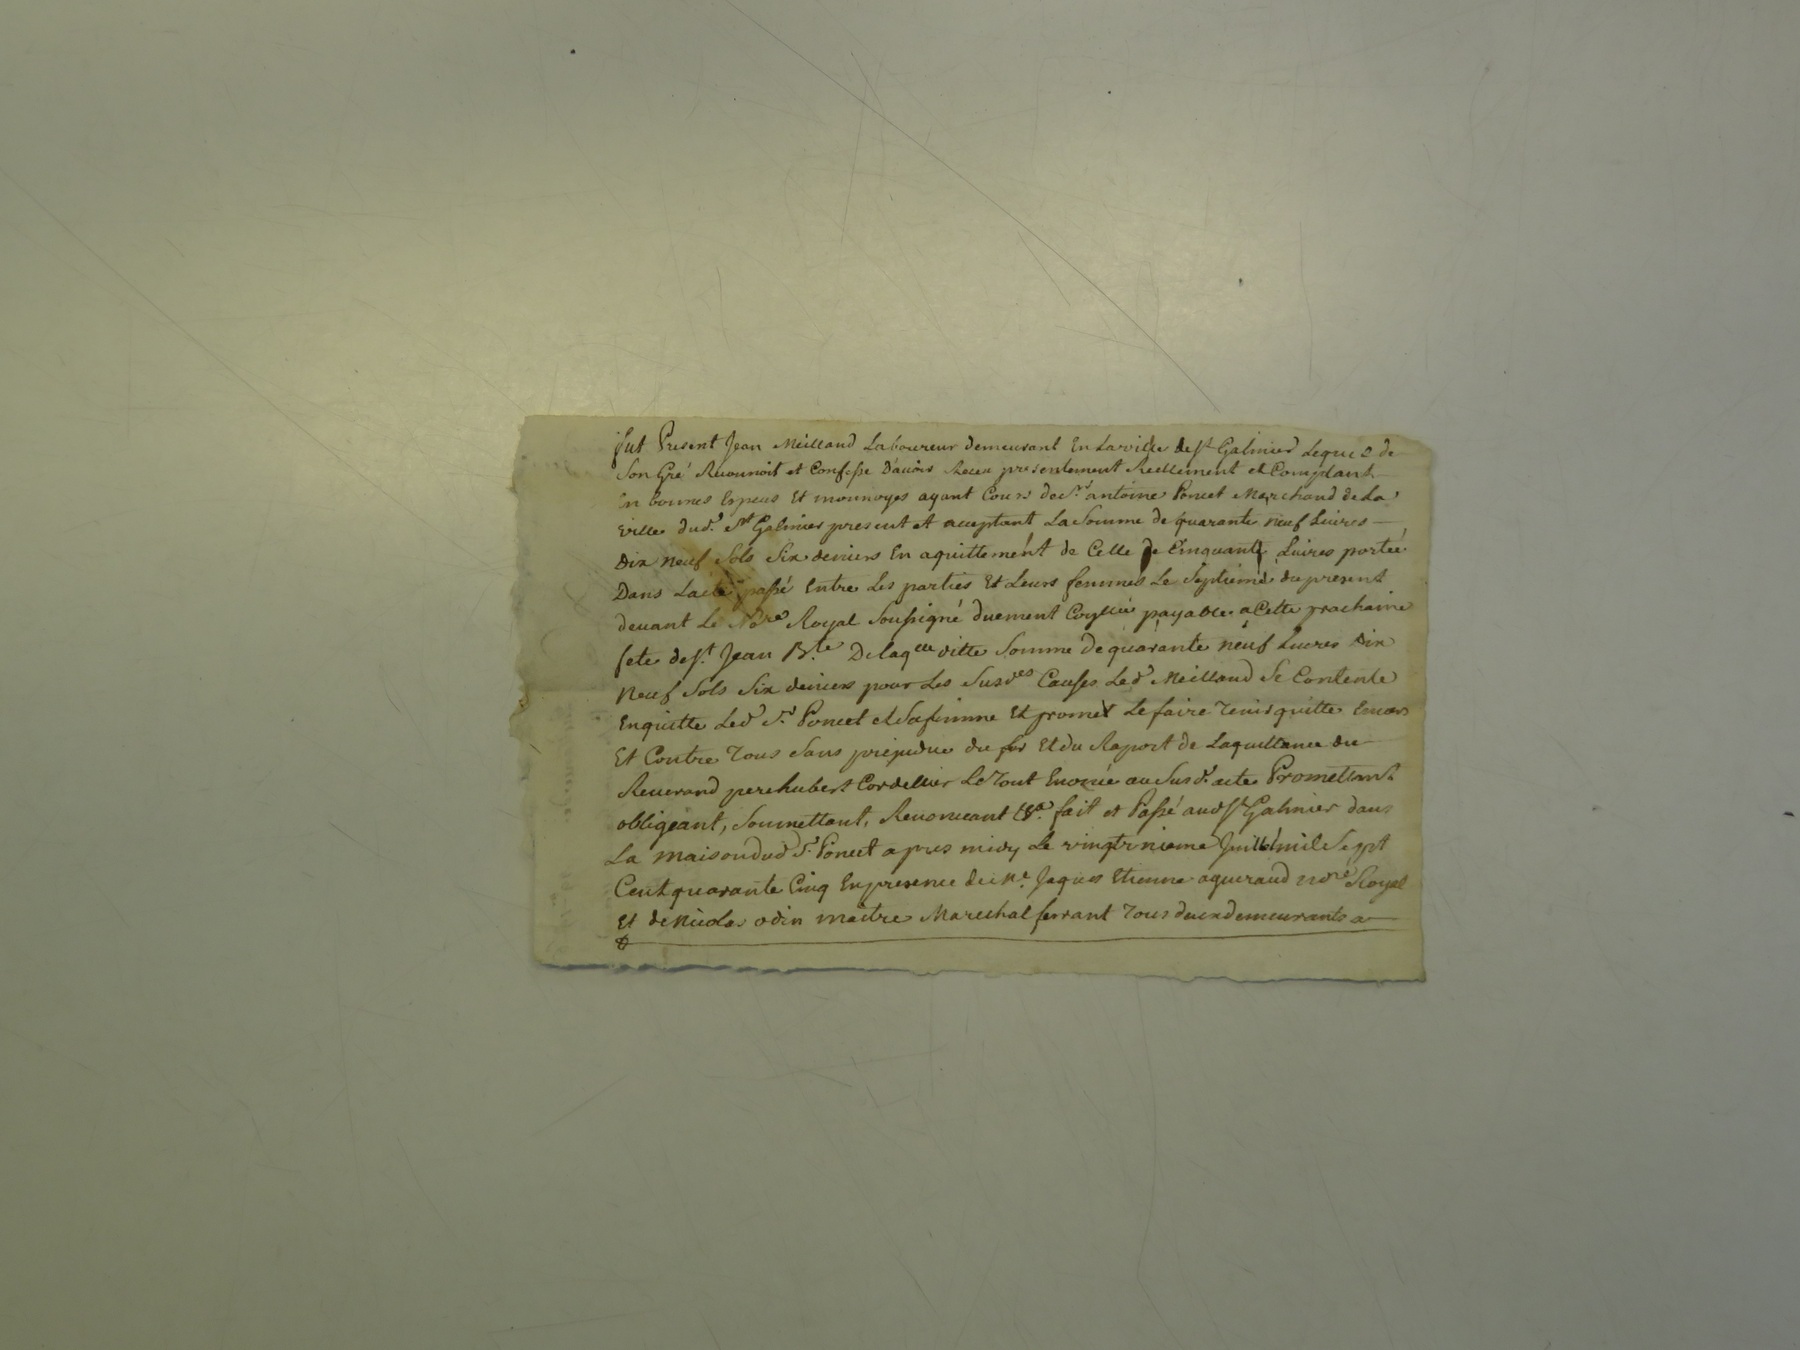 fut Present Jean Meilland Laboureur demeurant En La ville de St Galmier Lequel de
Son Gré Reconnoit et Confesse D'auoir Receu presentement Reellement et Comptant
En bonnes Especes Et monnoyes ayant Cours de Sr antoine Poncet Marchand de La
ville dud. St Galmier present et acceptant La Somme de quarante neuf Liures
Dix neuf Sols Six deniers En aquittement de Celle de Cinquante Liures portée
Dans Lacte passé Entre Les parties Et Leurs femmes Le Septieme du present
deuant Le Nore Royal Soussigné duement payable a Cette prochaine
fete de St Jean Bte De laqelle ditte Somme de quarante neuf Liures Dix
Neuf Sols Six deniers pour Les Susdes Causes Led Meilland Se Contente
Enquitte Led Sr Poncet et Sa femme Et promet Le faire Tenir quitte Enuers
Et Contre Tous Sans prejudice du Et du Raport de La quittance du
Reuerand pere hubert Cordellier Le Tout Enoncée au Susd. acte Promettant
obligeant, Soumettant, Renonceant &a. fait et Passé aud St Galmier dans
La maison dud Sr Poncet apres midy Le Juillet mil Sept
Cent quarante Cinq En presence de Me Jaques Etienne aguiraud nore Royal
Et de Nicolas odin maitre Marechal ferrant Tous deux demeurants a